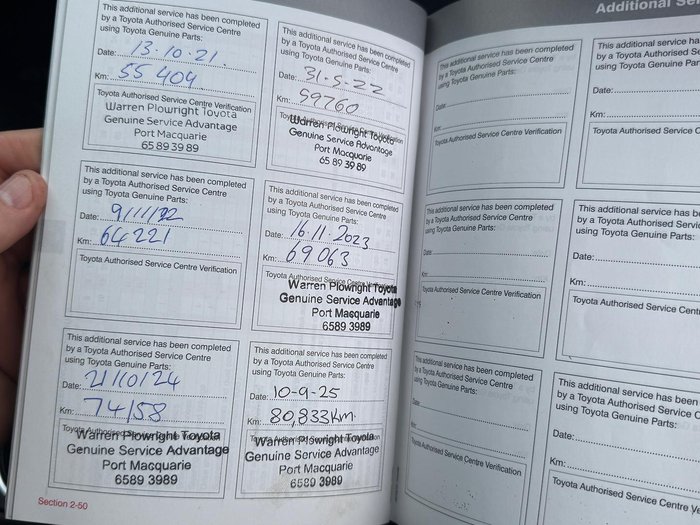 This additional service has been completed
by a Toyota Authorised Service Centre
using Toyota Genuine Parts:
Date: 13.10.21.
Km: 55 404
Toyota Authorised Service Centre Verification
Warren Plowright Toyota
Genuine Service Advantage
Port Macquarie
65 89 39 89
This additional service has been completed
by a Toyota Authorised Service Centre
using Toyota Genuine Parts:
Date: 31-5-22
Km: 59760
Toyota Authorised Service Centre Verification
Warren Plowright Toyota
Genuine Service Advantage
Port Macquarie
65 89 39 89
This additional service has been completed
by a Toyota Authorised Service Centre
using Toyota Genuine Parts:
Date: 9/11/22
Km: 64221
Toyota Authorised Service Centre Verification
This additional service has been completed
by a Toyota Authorised Service Centre
using Toyota Genuine Parts:
Date: 16.11.2023
Km: 69063
Toyota Authorised Service Centre Verification
Warren Plowright Toyota
Genuine Service Advantage
Port Macquarie
6589 3989
This additional service has been completed
by a Toyota Authorised Service Centre
using Toyota Genuine Parts:
Date: 21/10/24
Km: 74158
Warren Plowright Toyota
Genuine Service Advantage
Port Macquarie
6589 3989
This additional service has been completed
by a Toyota Authorised Service Centre
using Toyota Genuine Parts:
Date: 10-9-25
Km: 80,833Km
Warren Plowright Toyota
Genuine Service Advantage
Port Macquarie
6589 3989
Section 2-50
Additional
This additional service has been completed
by a Toyota Authorised Service Centre
using Toyota Genuine Parts:
Date:
Km:
Toyota Authorised Service Centre Verification
This additional service ha
by a Toyota Authorised
using Toyota Genuine Pa
Date:
Km:
Toyota Authorised Servi
This additional service has been completed
by a Toyota Authorised Service Centre
using Toyota Genuine Parts:
Date:
Km:
Toyota Authorised Service Centre Verification
This additional service has b
by a Toyota Authorised Ser
using Toyota Genuine Parts
Date:
Km:
Toyota Authorised Service Cent
This additional service has been completed
by a Toyota Authorised Service Centre
using Toyota Genuine Parts:
Date:
Km:
Toyota Authorised Service Centre Verification
This additional service has been
by a Toyota Authorised Service C
using Toyota Genuine Parts:
Date:
Km:
Toyota Authorised Service Centre V